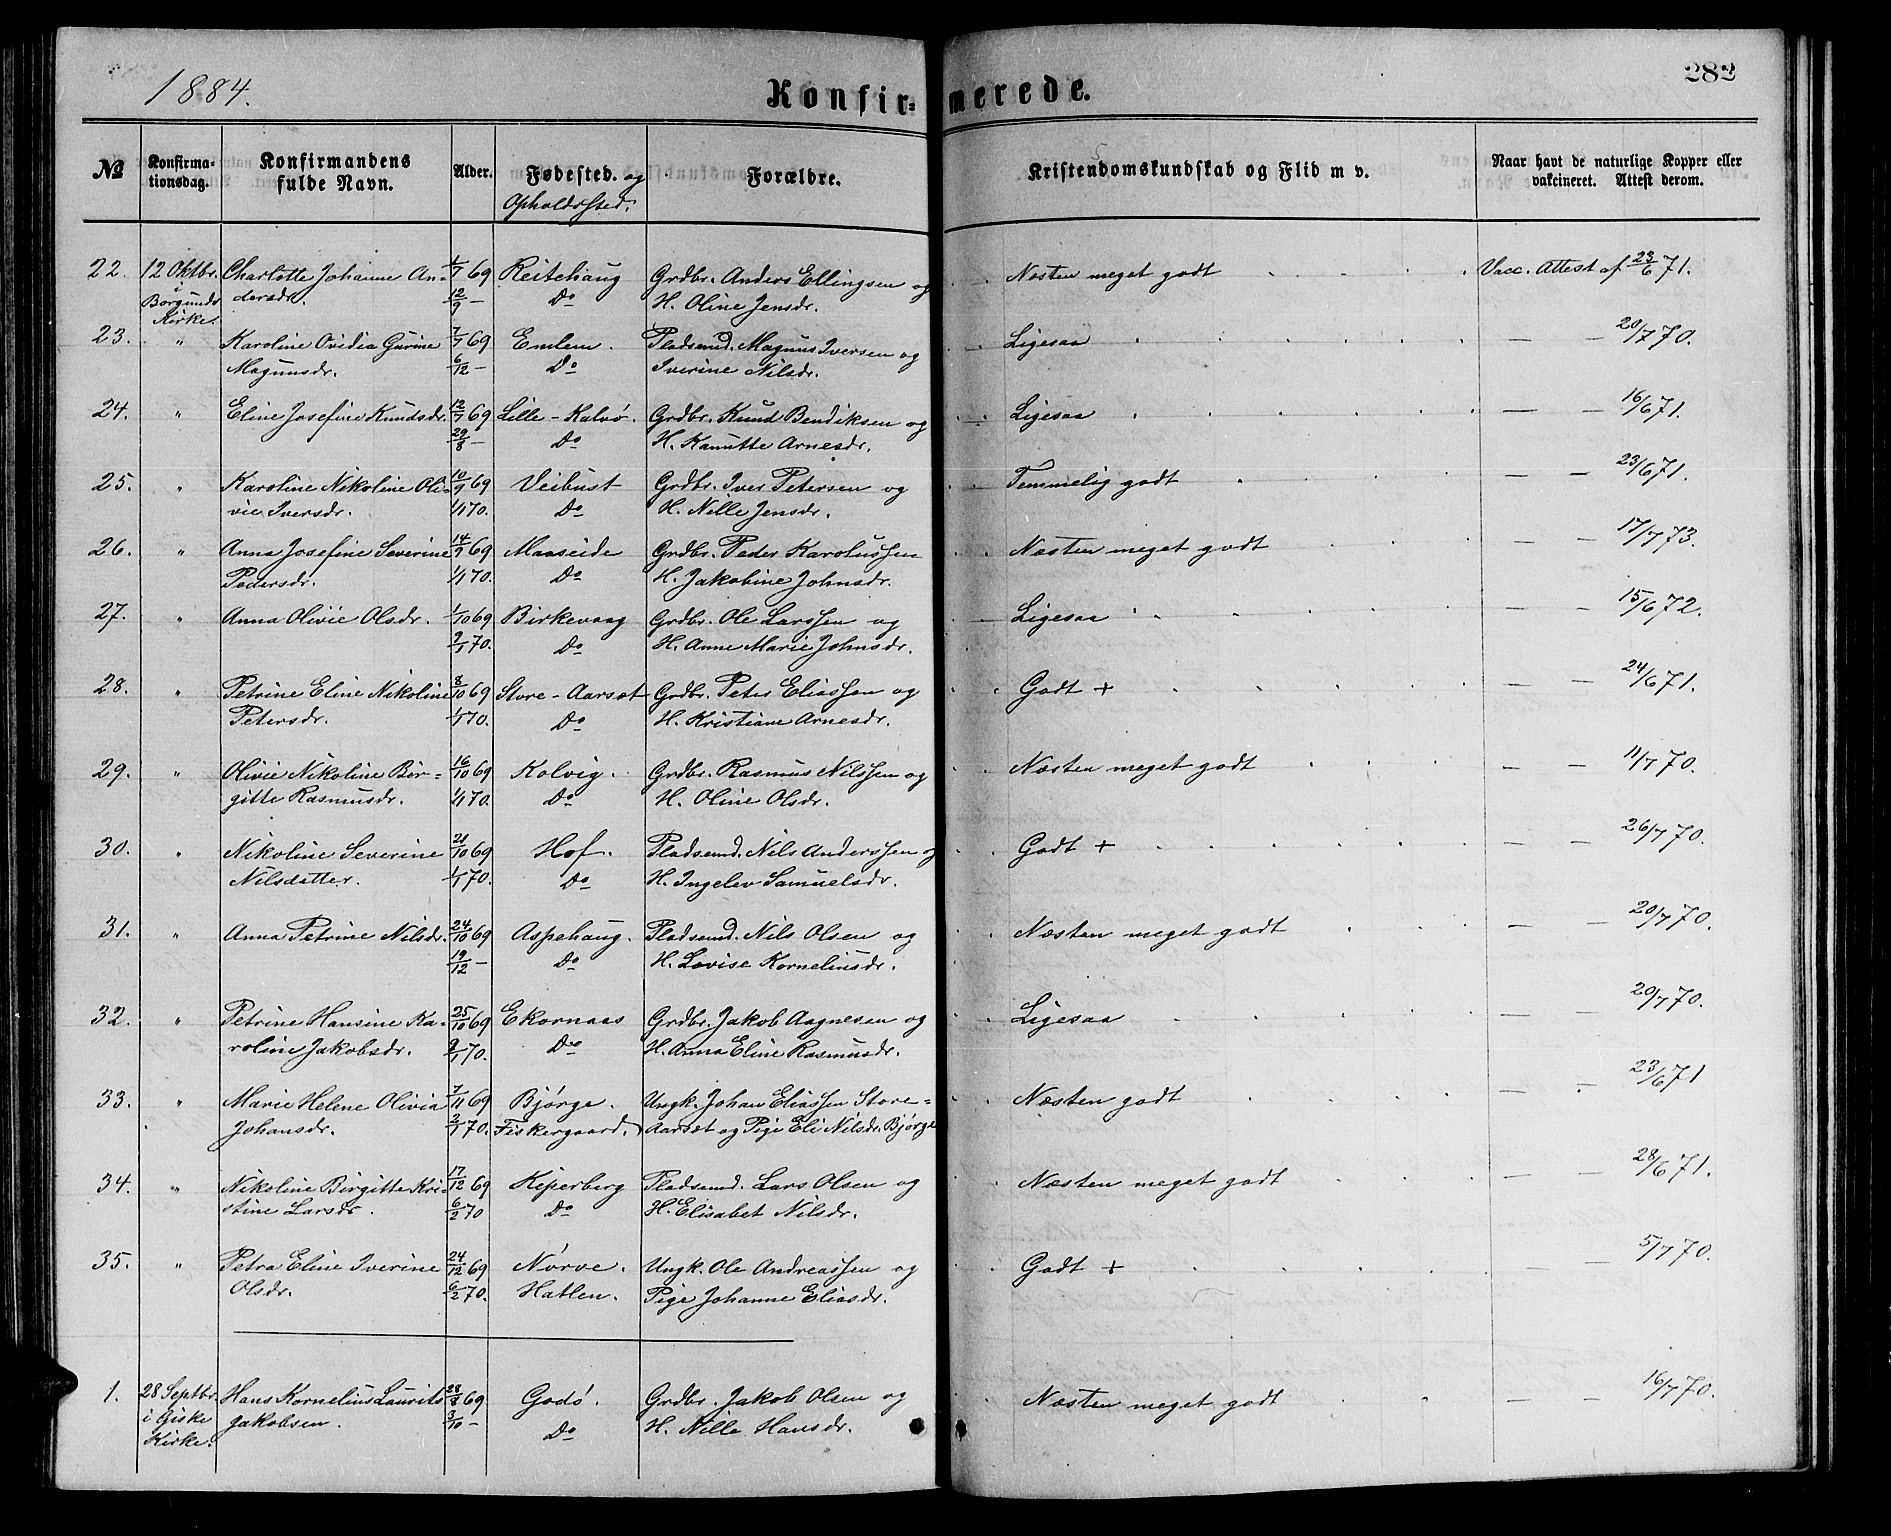 1884.
Konfirmerede.
282
No
Konfirma-
tionsdag.
Konfirmandens
fulde Navn.
Alder.
Fødested. og
Opholdssted.
Forældre.
Kristendomskundskab og Flid m v.
Naar havt de naturlige Kopper eller
vakcineret. Attest derom.
22. 12 Oktbr. Charlotte Johanne An- 1/7 69 Reitehaug Grdbr. Anders Ellingsen og Næsten meget godt Vacc. Attest af 23/6 71.
i Borgunds dersdr. 12/9 — Do H. Oline Jensdr.
Kirke.
23. " Karoline Ovidia Gurine 7/7 69 Emlem. Pladsmd. Magnus Iversen og Ligesaa — — 20/7 70.
Magnusdr. 6/12 — Do Iverine Nilsdr.
24. " Eline Josefine Knudsdr. 12/7 69 Lille-Kalvø. Grdbr. Knud Bendiksen og Ligesaa — — 16/6 71.
29/8 — Do H. Kanutte Arnesdr.
25. " Karoline Nikoline Oli- 10/9 69 Veibust Grdbr. Iver Petersen og Temmelig godt — — 23/6 71.
vie Iversdr. 1/1 70. Do H. Nille Jensdr.
26. " Anna Josefine Severine 14/9 69 Maaseide Grdbr. Peder Karolussen Næsten meget godt — — 17/7 73.
Pedersdr. 1/1 70. Do H. Jakobine Johnsdr.
27. " Anna Olivie Olsdr. 1/10 69 Birkevaag Grdbr. Ole Larssen og Ligesaa — — 15/6 72.
9/1 70. Do H. Anne Marie Johnsdr.
28. " Petrine Eline Nikoline 8/10 69 Store-Aarsæt Grdbr. Peter Eliassen og Godt + — — 24/6 71.
Petersdr. 1/1 70. Do H. Kristiane Arnesdr.
29. " Olivie Nikoline Ber- 16/10 69 Kolvig. Grdbr. Rasmus Nilssen og Næsten meget godt — — 11/7 70.
gitte Rasmusdr. 1/1 70. Do H. Oline Olsdr.
30. " Nikoline Severine 21/10 69 Hof. Pladsmd. Nils Anderssen og Godt + — — 26/7 70.
Nilsdatter. 1/1 70. Do H. Ingelev Samuelsdr.
31. " Anna Petrine Nilsdr. 24/10 69 Aspehaug. Pladsmd. Nils Olsen og Næsten meget godt — — 20/7 70.
19/12 — Do H. Lovise Korneliusdr.
32. " Petrine Hansine Ka- 25/10 69 Ekornaas Grdbr. Jakob Aagnesen og Ligesaa — — 20/7 70.
roline Jakobsdr. 9/1 70. Do H. Anna Eline Rasmusdr.
33. " Marie Helene Olivia 7/11 69 Bjørge. Ungk. Johan Eliassen Store- Næsten godt — — 23/6 71
Johansdr. 2/1 70. Fiskergaard. Aarsæt og Pige Eli Nilsdr. Bjørge
34. " Nikoline Birgitte Kri- 17/12 69 Kiperberg Pladsmd. Lars Olsen og Næsten meget godt — — 28/6 71.
stine Larsdr. 6/2 70 Do H. Elisabet Nilsdr.
35. " Petra Eline Iverine 24/12 69 Nørve. Ungk. Ole Andreassen og Godt + — — 5/7 70.
Olsdr. 6/2 70. Hatlen. Pige Johanne Eliasdr.
1. 28 Septbr. Hans Kornelius Laurits 28/8 69 Godø. Grdbr. Jakob Olsen og Næsten meget godt — — 16/7 70.
i Giske Jakobsen. 3/10 — Do H. Nille Hansdr.
Kirke.